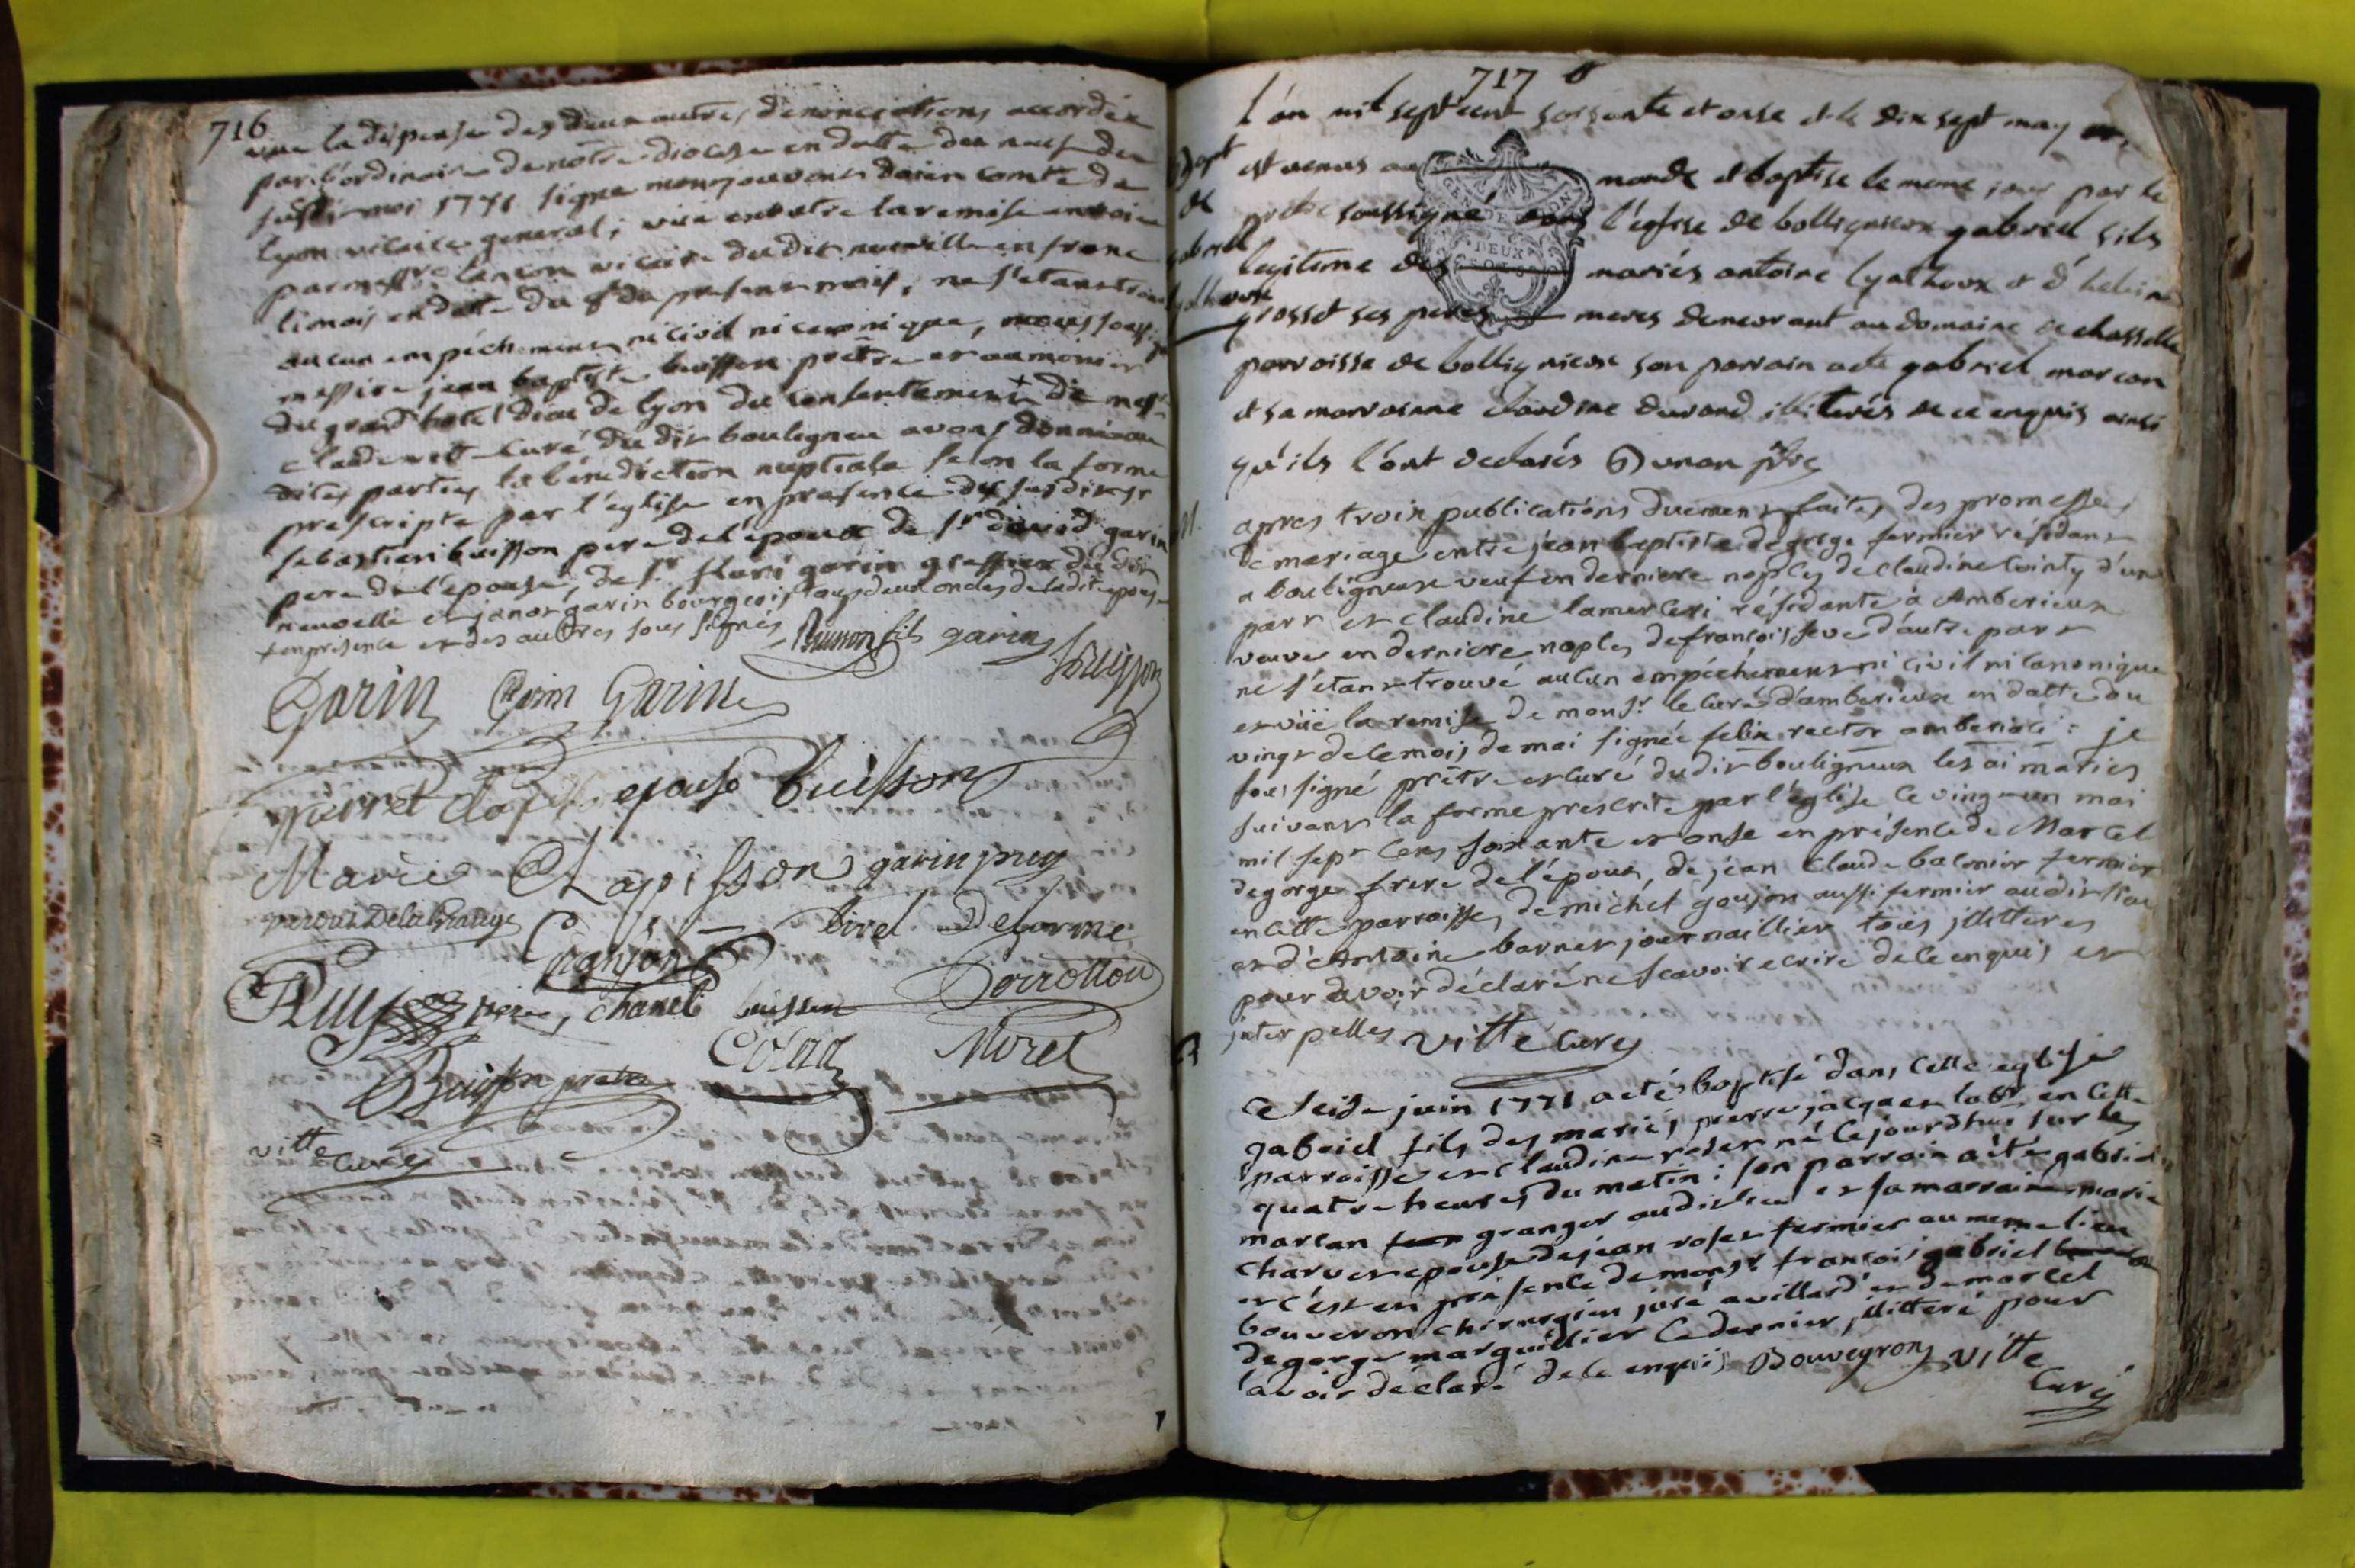 716
vue la dispense des deux autres denonciations accordée
par l'ordinaire de notre diocese en datte du neuf du
susdit moi 1771 signe montjouvent doien comte de
Lyon vicaire general; vüe en outre la remise envoiée
par messre lançon vicaire du dit neuville en franc
lionois en datte du du present mois, ne s'etant trouvé
aucun empéchement ni civil ni canonique, nous soussigné
messire jean baptiste buisson prêtre et aumonier
du grand hotel dieu de lyon du consentement + de messre
claude vitte curé du dit bouligneu avons donné aux
dites parties la bénédiction nuptiale selon la forme
prescripte par l'église en presence des susdits sr
sebastien buisson pere de l'époux de sr david garin
pere de l'épouse, de sr fleuri garin greffier du dit
neuville et janot garin bourgeois tous deux oncles de ladite epouse
+ en presence et des autres sous signés Buisson fils garin
Buisson
Garin Garin Garin
epouse buisson
Marie Chapisson garin puy
Granjon Livel Delorme
Puy pere, chanel buisson Porrollon
Buisson pretre Colaud Morel
vitte
curé
717
L'an mil sept cent soissante et onse et le dix sept may
est venus au monde et baptise le meme jour par le
Bapt
de
gabriel
lyathoux
prêtre soussigné dans l'église de bollignieux gabriel fils
DEUX SOLS
legitime des mariés antoine lyathoux et d'helein
grosset ses peres et meres demeurant au domaine de chasselle
parroisse de bollignieux son parrain a eté gabriel marcan
et sa marrainne claudine durand illiterés de ce enquis ainsi
qu'ils l'ont declarés Dunan ptre
apres trois publications duement faites des promesses
de mariage entre jean baptiste degorge fermier résidant
a bouligneux veuf en derniere noples de claudine cointy d'une
part et claudine lamercerie résidante à Amberieux
veuve en derniere noples de françois seve d'autre part
ne s'étant trouvé aucun empéchement ni civil ni canonique
et vüe la remise de monsr le curé d'amberieux en datte du
vingt de ce mois de mai signée felix rector amberiaci: je
sous signé prêtre et curé du dit bouligneux les ai mariés
suivant la forme prescrite par l'église ce vingt un mai
mil sept cens soixante et onse en présence de Marcel
degorge frere de l'époux, de jean claude balmier fermier
en cette parroisse, de michel goujon aussi fermier audit lieu
et d'Antoine barnet journaillier tous jllitterés
pour avoir déclaré ne scavoir ecrire de ce enquis et
jnterpellés vitte curé
Le seise juin 1771 a eté baptisé dans cette eglise
gabriel fils des mariés pierre jacquet en cette
parroisse et claudine roset né ce jourd'huy sur les
quatre heures du matin: son parrain a été gabriel
marcan granger audit lieu et sa marraine marie
charvet epouse de jean roset fermier au meme lieu
et c'est en présence de monsr françois gabriel
bouveron chirurgien juré a villard et de marcel
degorge marguillier ce dernier jllitteré pour
l'avoir déclaré de ce enquis Bouveyron vitte
curé